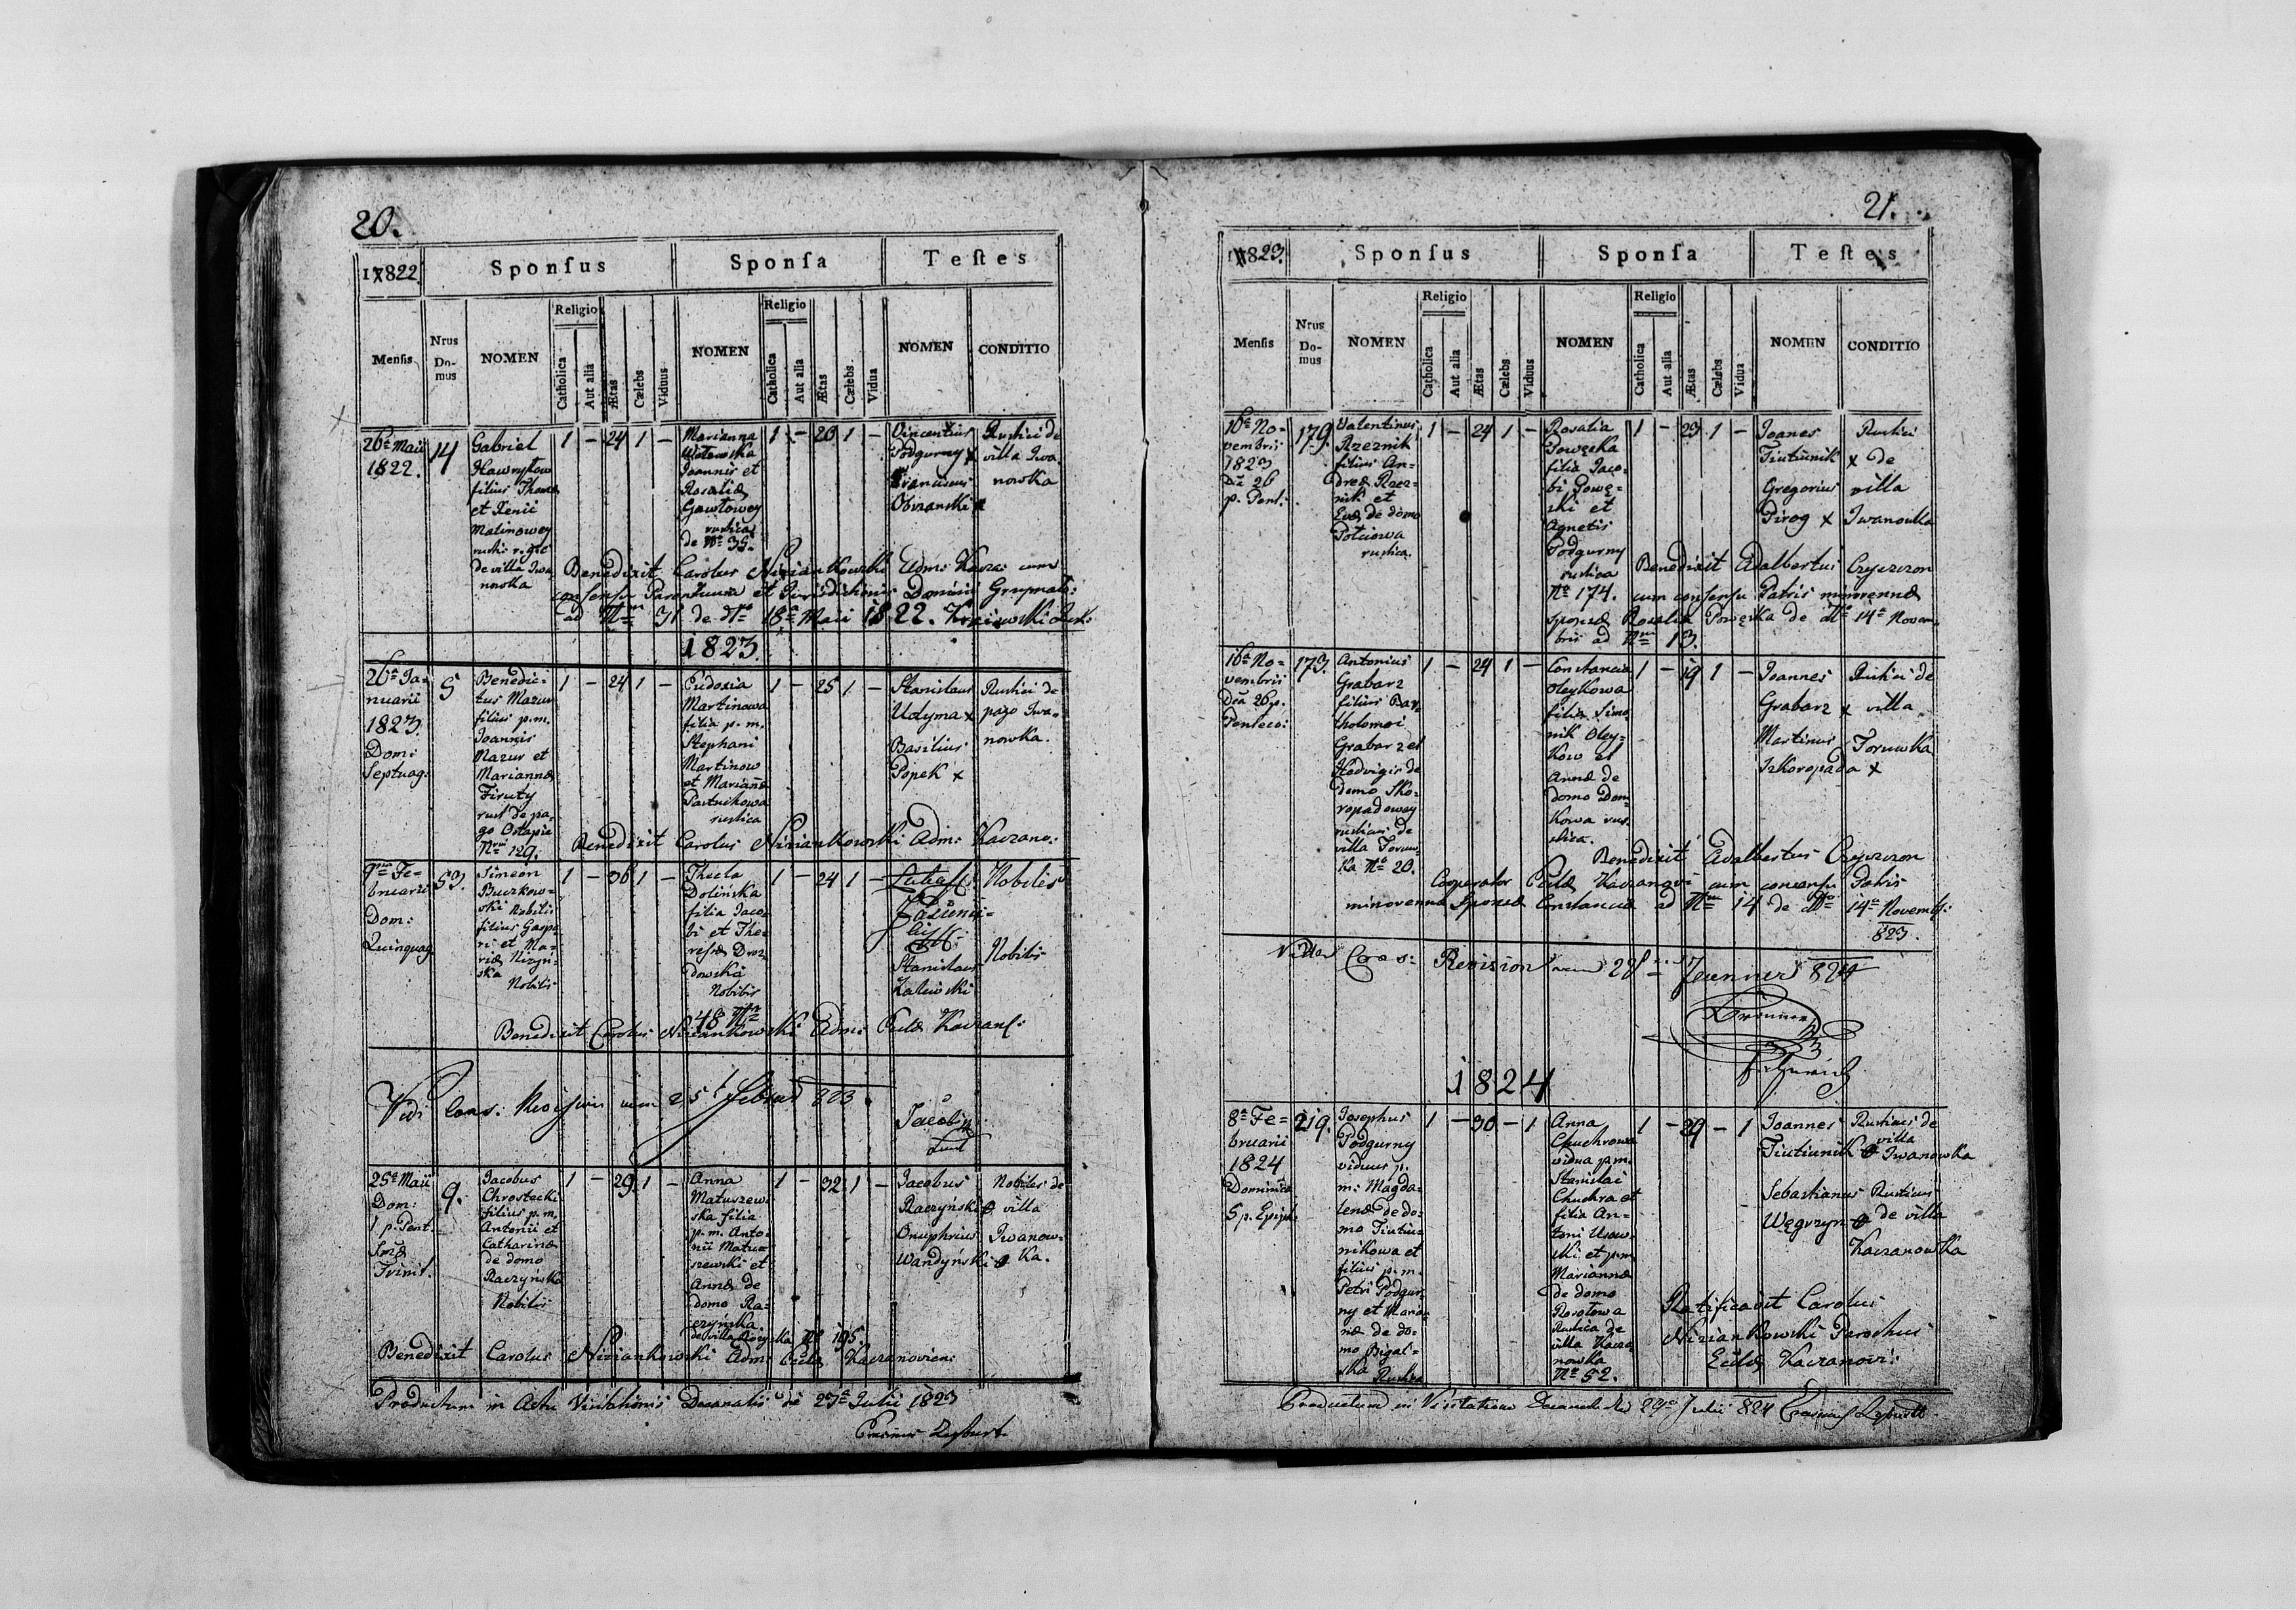 20.
1822.
Sponsus
Sponsa
Testes
Mensis
Nrus Do-mus
NOMEN
Religio
Catholica
Aut alia
Ætas
Cælebs
Viduus
NOMEN
Religio
Catholica
Aut alia
Ætas
Cælebs
Vidua
NOMEN
CONDITIO
26ta Maii
1822.
14
Gabriel
Hawryłow
filius Thomæ
et Xenii
Malinowey
de villa Iwa
nowka
1 - 24 1 -
Marianna
Joannis et
Rosaliæ
Gawłowey
rustica
de Nro 35.
1 - 20 1 -
Vincentius
Podgurny x
Franciscus
Rustici de
villa Iwa-
nowka
Benedixit Carolus Niziankowski Adm: Kacza: cum
consensu Parentum et Jurisdictionis Dominii Grzymalo:
ad Nrum 31 de dto 18a Maii 1822.
1823.
26ta Ja-
nuarii
1823.
Dom:
Septuag:
5
Benedic-
tus Mazur
filius p.m.
Joannis
Mazur et
Mariannæ
Firuty
rust de pa-
go Ostapie
Nrum 129.
1 - 24 1 -
Eudoxia
Martinowa
filia p.m.
Stephani
Martinow
et Mariannæ
rustica
1 - 25 1 -
Stanislaus
Udyma x
Basilius
Popek x
Rustici de
pago Iwa-
nowka.
Benedixit Carolus Niziankowski Adm: Kaczano:
9na Fe-
bruarii
Dom:
Quinquag.
53.
Simeon
Buczkow-
ski Nobilis
filius Gaspa
ri et Ma-
riæ Nizyn-
ska
Nobilis
1 - 36 1 -
Thecla
Dolinska
filia Jaco-
bi et The-
resiæ Droz-
dowska
Nobilis
48 Nro
1 - 24 1 -
Stanislaus
Zaliwski
Nobilis
Nobilis
Benedixit Carolus Niziankowski Adm: Eccl Kaczano:
Vidi Cans: Revision vom 25t Februar 823
Jacob
25ta Maii
Dom:
1 p. Pent.
Smæ
Trinit.
9.
Jacobus
Chrostecki
filius p.m.
Antonii et
Catharinæ
de domo
Raczyńska
Nobilis
1 - 29 1 -
Anna
Matuszew-
ska filia
p.m. Anto-
nii Matu-
szewski et
Annæ de
domo Ra-
czyńska
1 - 32 1 -
Jacobus
Raczyński
Onuphrius
Wandyński
Nobiles de
villa
Iwanow-
ka.
Benedixit Carolus Niziankowski Adm: Eccl Kaczanovien:
Productum in Actu Visitationis Decanalis de 27a Julii 1823
21.
1823.
Sponsus
Sponsa
Testes
Mensis
Nrus Do-mus
NOMEN
Religio
Catholica
Aut alia
Ætas
Cælebs
Viduus
NOMEN
Religio
Catholica
Aut alia
Ætas
Cælebs
Vidua
NOMEN
CONDITIO
16ta No-
vembris
1823
Dca 26
p. Pent.
179.
Valentinus
Rzeznik
filius An-
dreæ Rzez-
nik et
Evæ de domo
rustica.
1 - 24 1 -
Rosalia
Powęska
filia Jaco-
bi Powę-
ski et
Agnetis
Podgurny
rustica
No 174.
1 - 23 1 -
Joanes
Tiutiunik x
Gregorius
Pirog x
Rustici
de
villa
Iwanowka
Benedixit Adalbertus Czyrzon
cum consensu Patris minorennæ
sponsæ Rosaliæ Powęska de dto 14a Novem-
bris ad Nrum 13.
16ta No-
vembris
Dca 26 p.
Penteco:
173.
Antonius
Grabarz
filius Bar-
tholomei
Grabarz et
Hedvigis de
domo Sko-
ropadowey
rusticus de
villa Torow-
ka No 20.
1 - 24 1 -
Constancia
Oleykowa
filia Simo-
nik Oley-
kow et
Annæ de
domo Dom-
kowa rus-
tica.
1 - 19 1 -
Joannes
Grabarz x
Martinus
Szkoropada x
Rustici de
villa
Torowka
Benedixit Adalbertus Czyrzon
Cooperator Eccl Kaczanov: cum consensu Patris
minorennæ Sponsæ Constanciæ ad Nrum 14 de dto 14a Novemb:
823.
Cons: Revision vom 28 Jenner 824
1824
8a Fe-
bruarii
1824
Dominica
5 p. Epiph.
219.
Josephus
Podgurny
viduus p.
m. Magda-
lenæ de do-
mo Tiutiu-
nikowa et
filius p.m.
Petri Podgur-
ny et Maria-
næ de do-
mo Bigal-
ska Rustica
1 - 30 - 1
Anna
Chuchrowa
vidua p.m.
Stanislai
Chuchra et
filia An-
toni
et p.m.
Mariannæ
de domo
Rustica de
villa Kacza
nowka
No 52.
1 - 29 - 1
Joannes
Tiutiunik
Sebastianus
Węgrzyn
Rusticus de
villa
Iwanowka
Rusticus
de villa
Kaczanowka
Ratificavit Carolus
Niziankowski Parochus
Eccl Kaczanovi:
Productum in Visitatione Decanali die 29a Julii 824